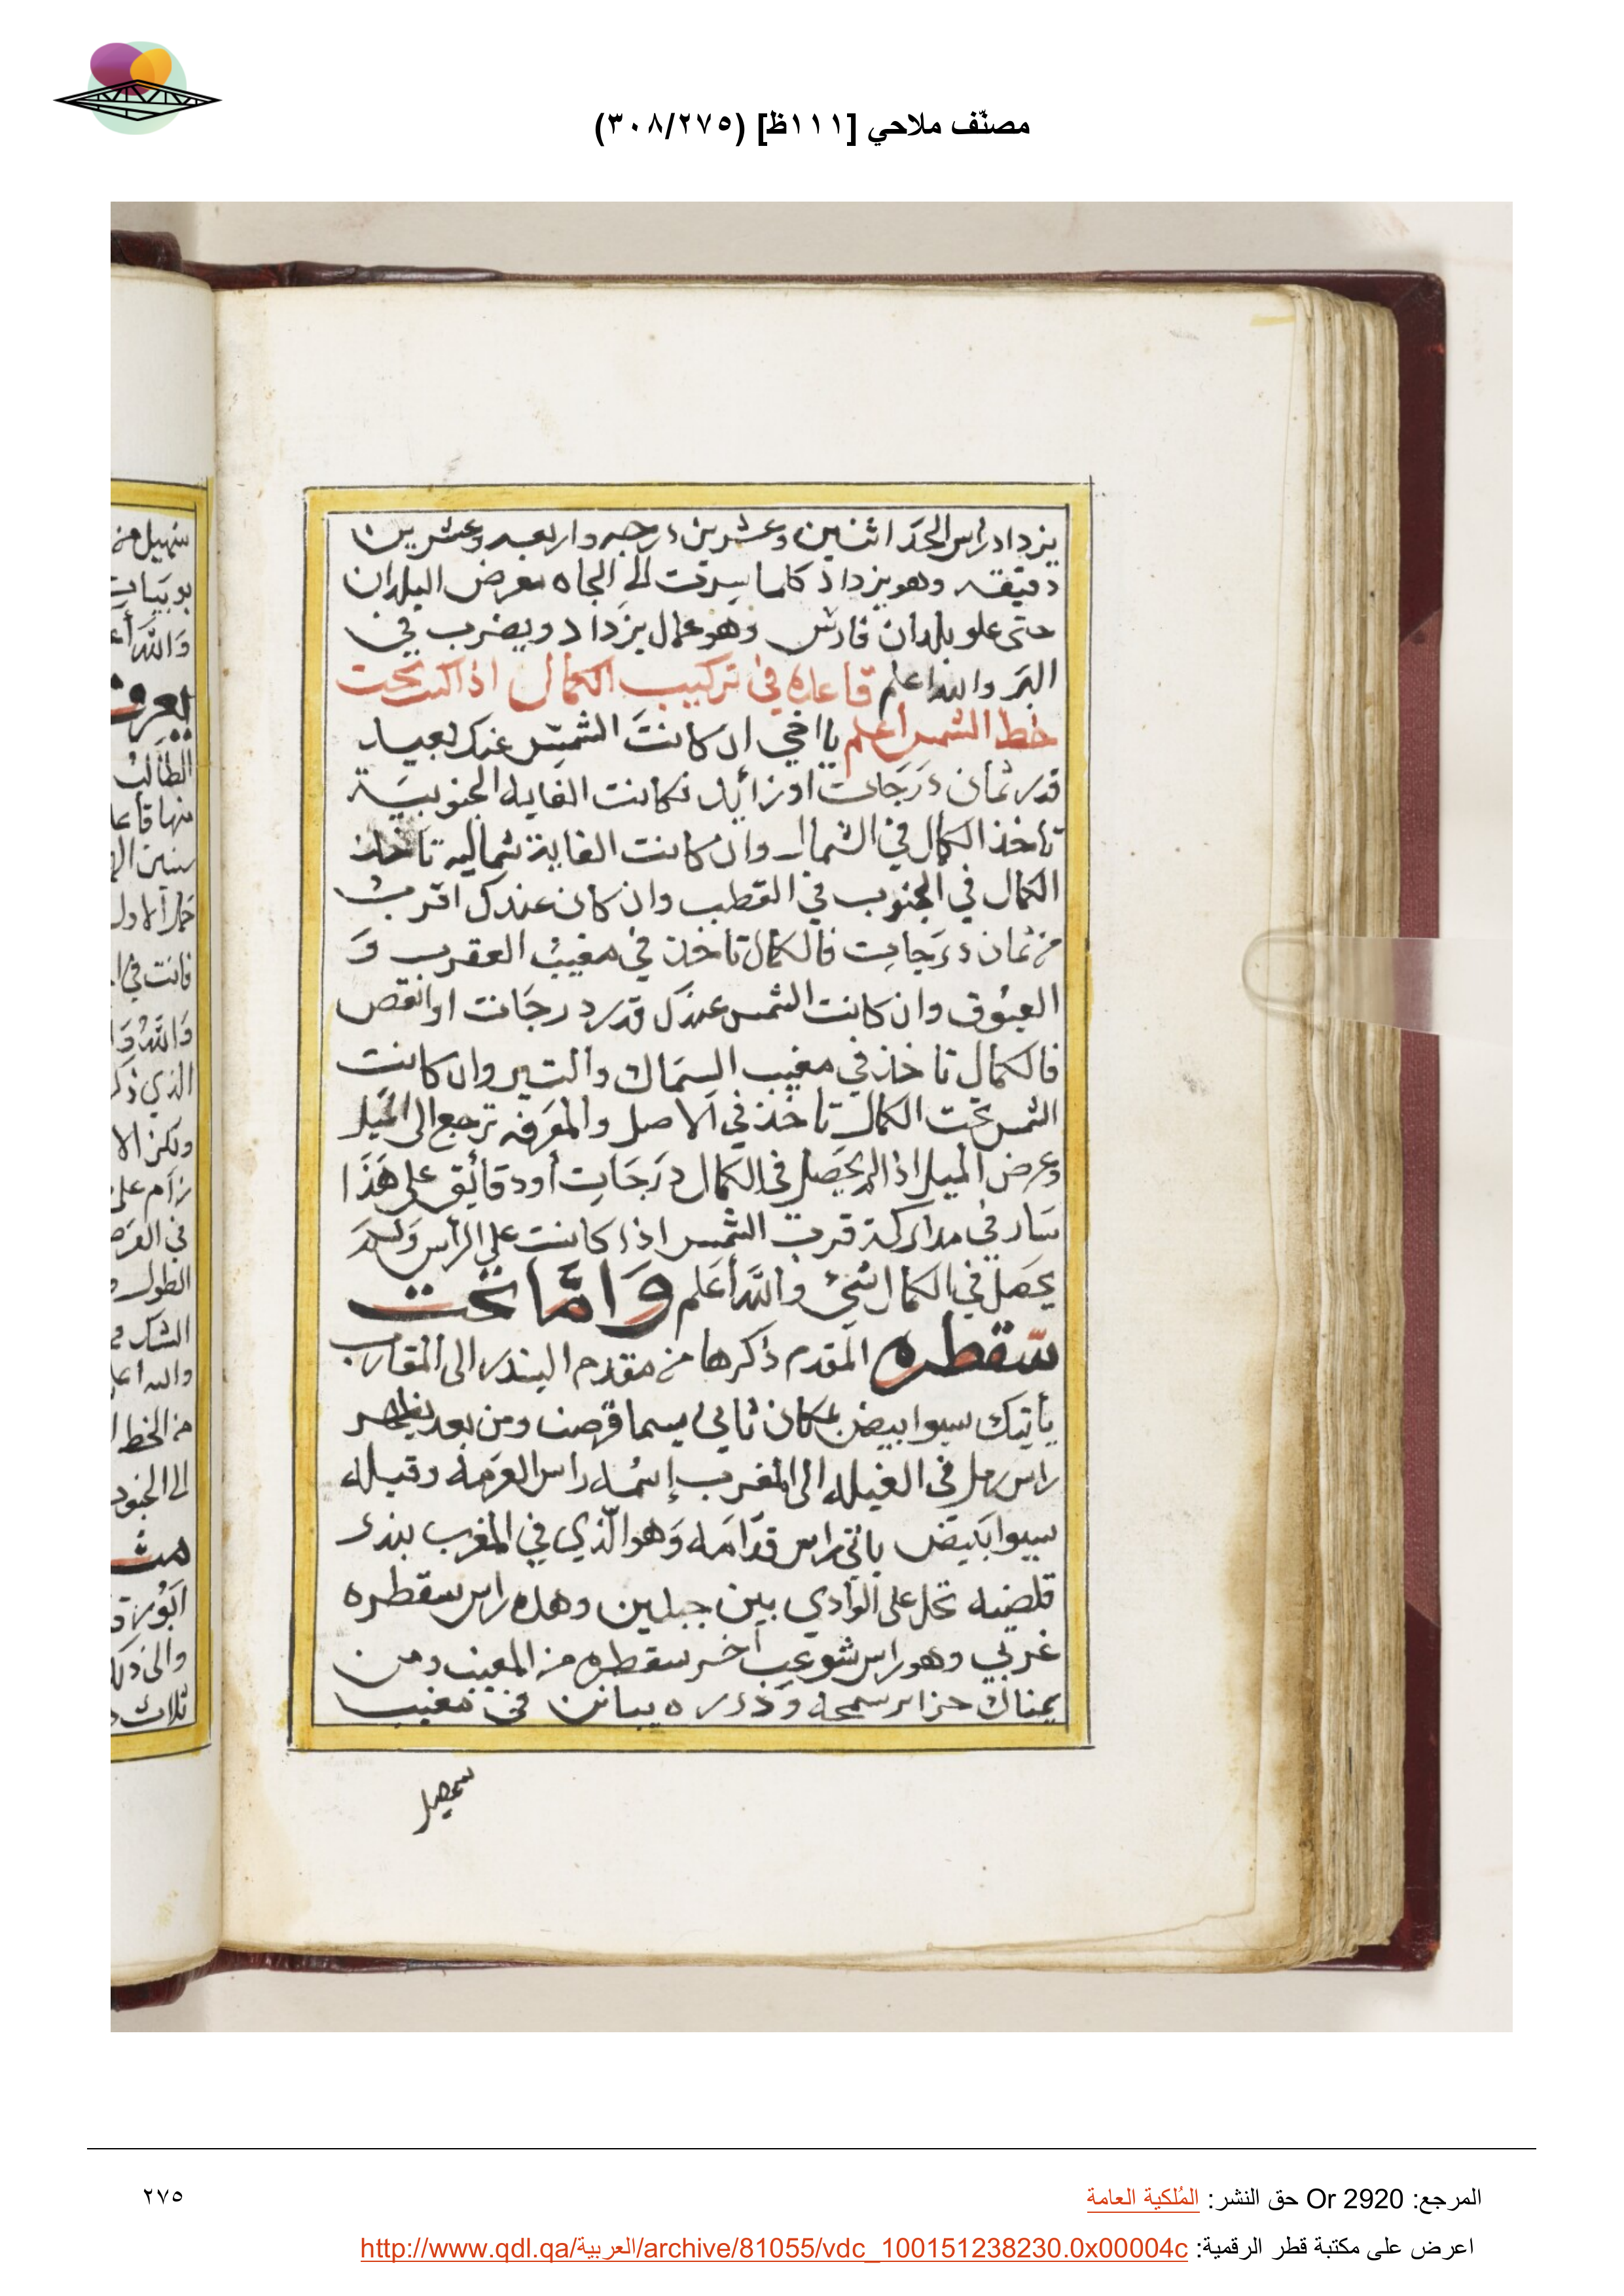 مصنّف ملاحي [١١١ظ] (٣٠٨/٢٧٥)
يزداد راس الحد اثنين وعشرين درجه واربعه وعشرين
دقيقه وهو يزداد كلما سرت الي الجاه بعرض البلدان
حتى علو بلدان فارس وهو عمال يزداد ويضرب في
البَر والله اعلم قاعده في تركيب الكمال اذا كنت تحت
خط الشمس أعلم يا اخي ان كانتَ الشمس عندك بعيد
قدر ثمان دَرَجات او زائد فكانت الغايه الجنوبيَة
تاخذ الكمال في الشمال وان كانت الغاية شماليه تاخذ
الكمال في الجنوب في القطب وان كان عندك اقرب
من ثمان درَجات فالكمال تاخذ في مغيب العقرب وَ
العيوق وان كانت الشمس عندك قدر درجات او انقص
فالكمال تاخذ في مغيب السماك والتير وان كانت
الشمس تحت الكمال تاخذ في الاصل والمعَرفه ترجع الى الميَل
وعرض الميل اذا لم يحَصل في الكمال دَرَجَات أو دقائق على هَذَا
سَار في مداركة قرب الشمس اذا كانت علي الرأس وَلم
يحَصل في الكمال شيء والله أعَلم وَامَّا تحت
سقطره المقدم ذكرها من مقدم البندر الى المقارب
يأتيك سيوا بيض بمكان ثاني يسما قرصت ومن بعد يظهر
راس رمل في الغيله الى المغرب إسمُه راس العرَمه وقبله
سيوا ابَيض ياتي راس قدَّامَه وَهو الّذي في المغرب بندر
قلضيه تحل على الوَادي بين جبلين وهذه راس سقطره
غربي وهو راس شوعب أخر سقطره من المغيب ومن
يمناك جزاير سمحه وَدرره يبانن في مغيب
سهيل
المرجع: Or 2920 حق النشر: المُلكية العامة
٢٧٥
اعرض على مكتبة قطر الرقمية: http://www.qdl.qa/العربية/archive/81055/vdc_100151238230.0x00004c